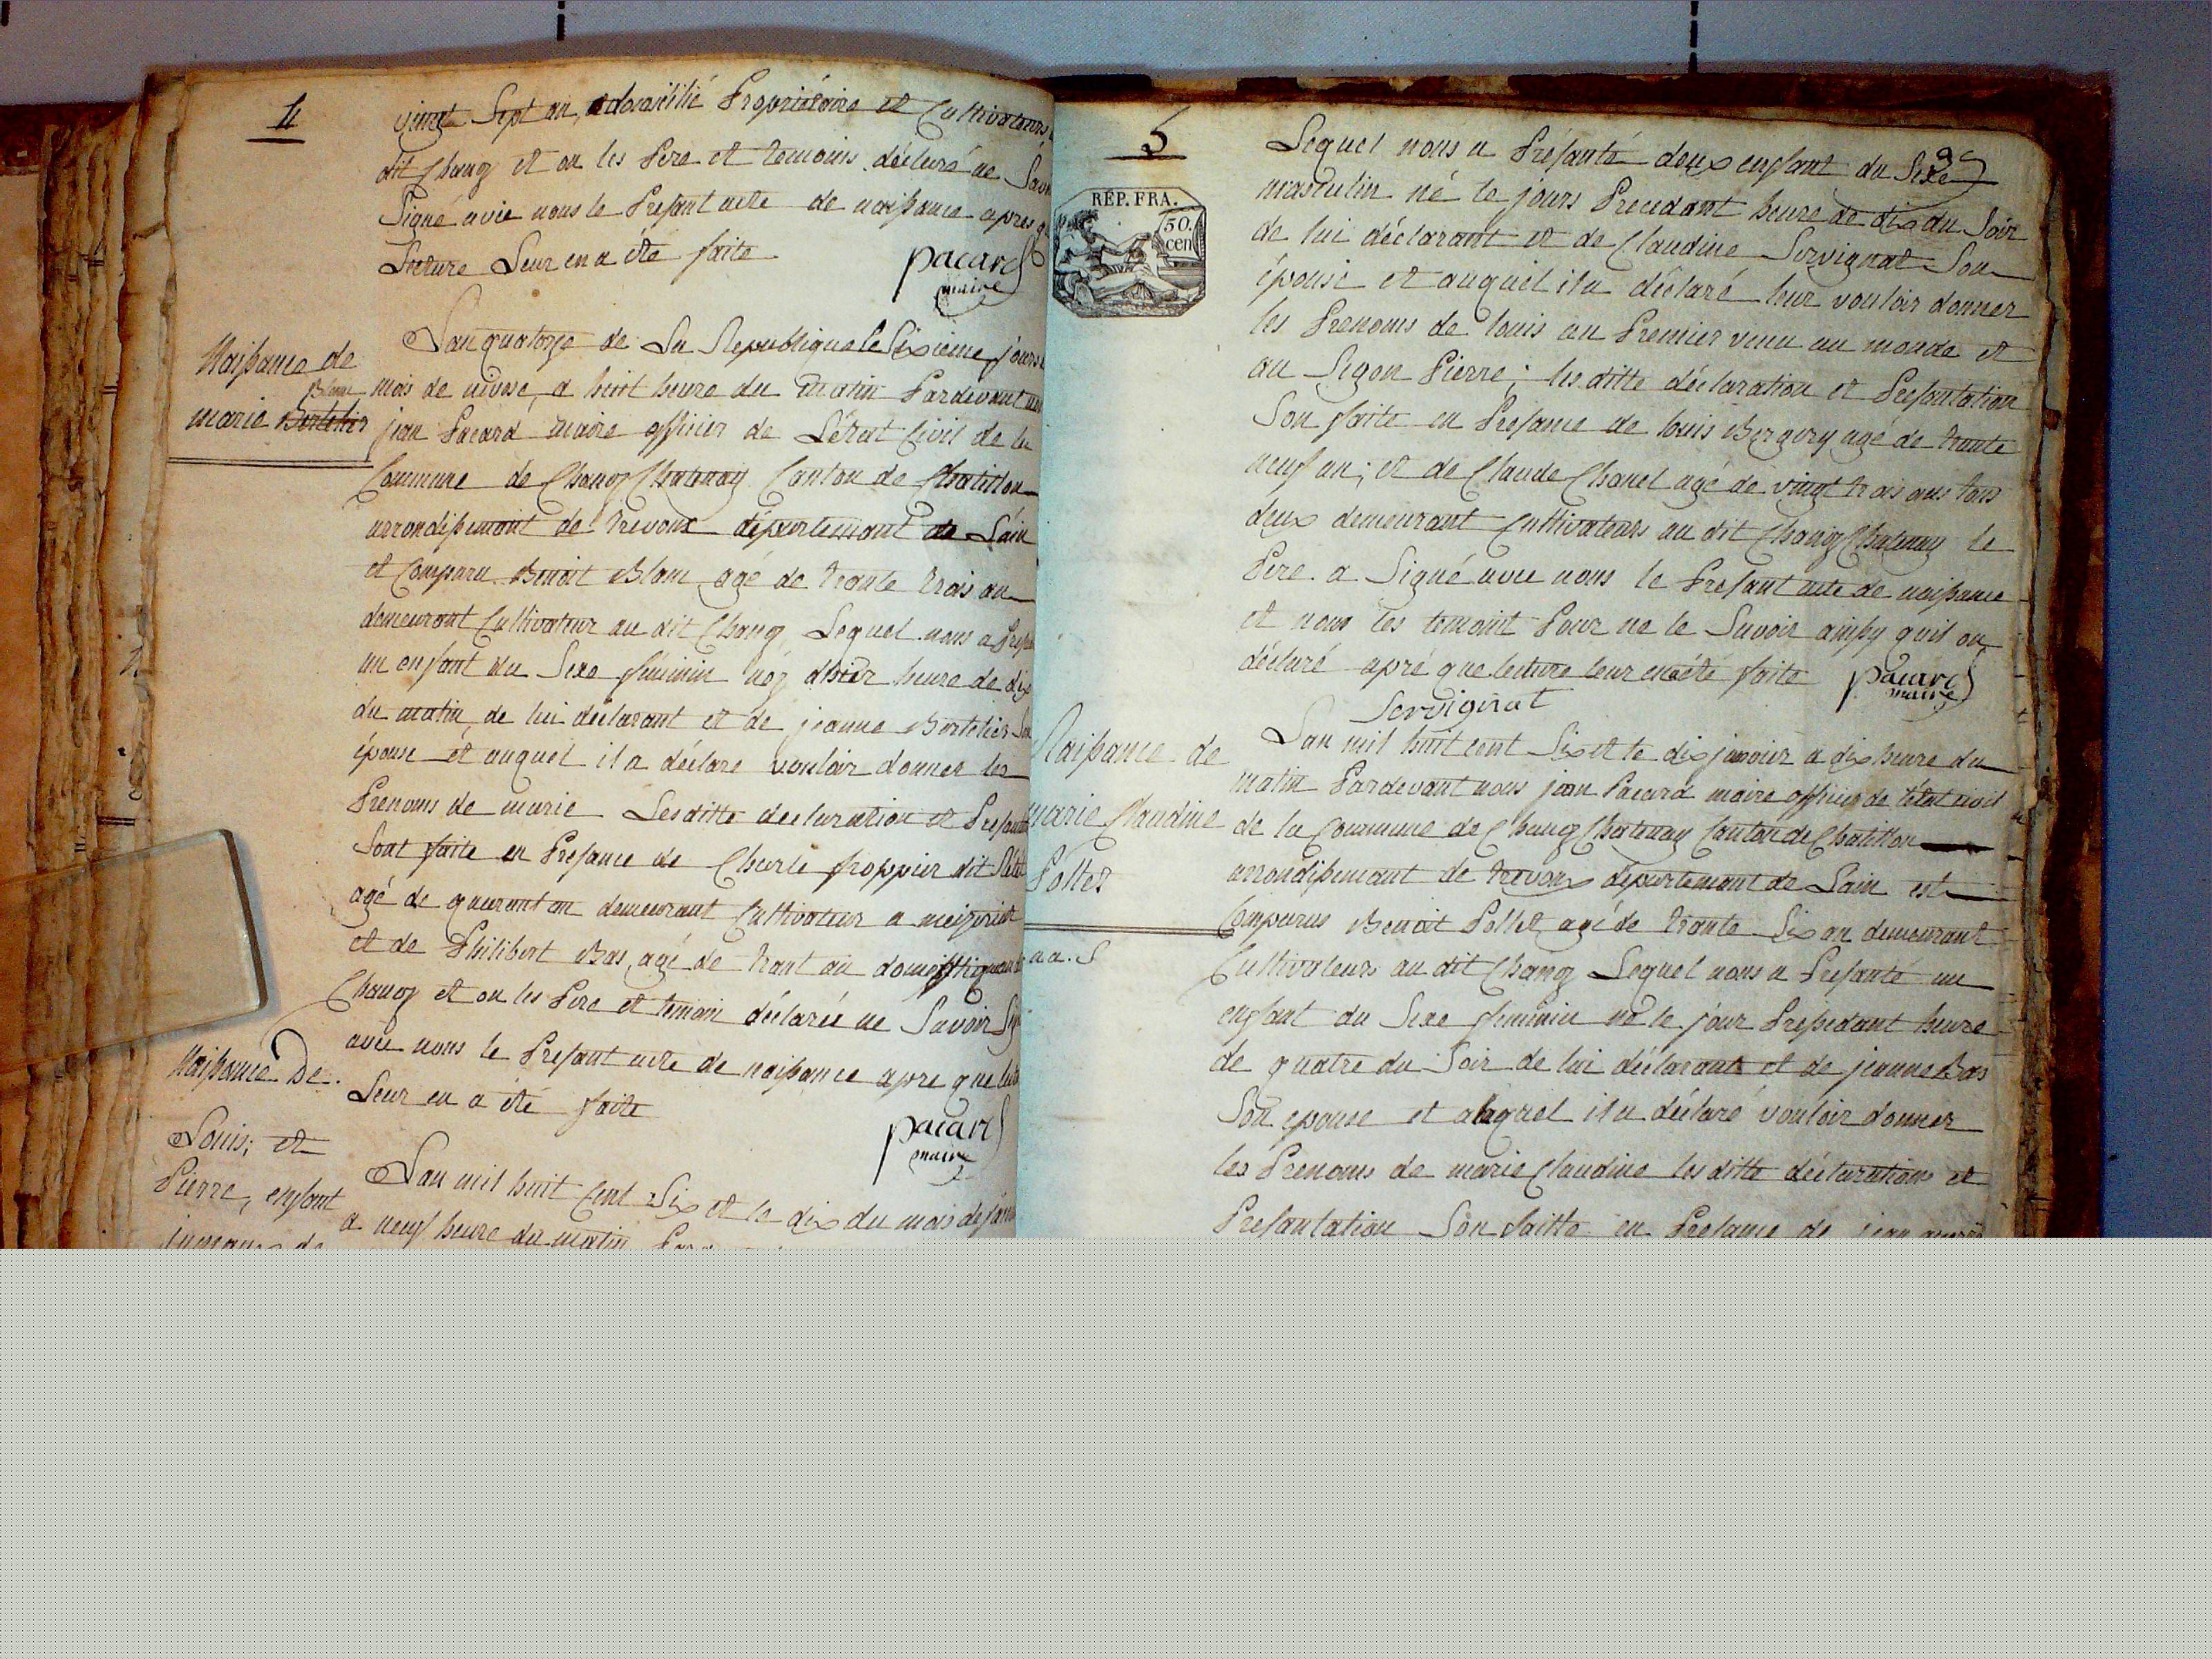 4
vingt Sept an, domicilié Propriétaire et Cultivateurs
dit Chanoz et on les Pere et temoins déclaré ne Savoir
Signé avec nous le Présant acte de naissance apres q
Lecture Leur en a été faite
pacard
maire
Naissance de
Blanc
marie Bertelier
L'an quatorze de La Republique le Sixieme jours
mois de nivose, a huit heure du matin Pardevant
jean Pacard maire officier de L'état Civil de la
Commune de Chanoz Chatenay Canton de Chatillon
arrondissemant de trevoux départemant de L'ain
et Comparu Benoit Blanc agé de trante trois an
demeurant Cultivateur au dit Chanoz Lequel nous a
un enfant du Sexe féminin né heure de dix
du matin, de lui déclarant et de jeanne Bertelier Son
épouse et auquel il a déclaré vouloir donner les
Prenoms de marie Les ditte declaration et
Sont faite en Presance de Charle froppier dit
agé de quarant an demeurant Cultivateur a
et de Philibert Bas, agé de trant an domestique
Chanoz et on les Pere et temoin déclaréé ne Savoir
avec nous le Presant acte de naissance apre que
Leur en a été faite
pacard
maire
Naissance De
Louis; et
Pierre, enfant
jumeaux de
L'an mil huit Cent Six et le dix du mois de
a neuf heure du matin
5
RÉP. FRA.
50.
cen
Lequel nous a Présanté deux enfant du Sexe
masculin né le jours Precedant heure de dix du Soir
de lui déclarant et de Claudine Servignat Son
épouse et auquel il a déclaré leur vouloir donner
les Prenoms de louis au Premier venu au monde et
au Segon Pierre; les ditte déclaration et Presantation
Son faite en Presance de louis Bergery agé de trante
neuf an; et de Claude Chanel agé de vingt trois ans tous
deux demeurant Cultivateurs au dit Chanoz Chatenay le
Pere a Signé avec nous le Présant acte de naissance
et nom les temoint Pour ne le Savoir ainsy quil on
déclaré apré que lecture leur en a été faite
pacard
maire
Servignat
Naissance de
marie Claudine
Pollet
L'an mil huit cent Six et le dix janvier a dix heure du
matin Pardevant nous jean Pacard maire officier de l'état civil
de la Commune de Chanoz Chatenay Canton de Chatillon
arrondissemant de trevoux départemant de L'ain est
Comparus Benoit Pollet agé de trante Six an demeurant
Cultivateurs au dit Chanoz Lequel nous a Presanté un
enfant du Sexe féminin né le jour Pressedant heure
de quatre du Soir de lui déclarant et de jeanne Bas
Son epouse et alaquel il a déclaré vouloir donner
les Prenoms de marie Claudine les ditte déclarations et
Presantation Son faitte en Presance de jean